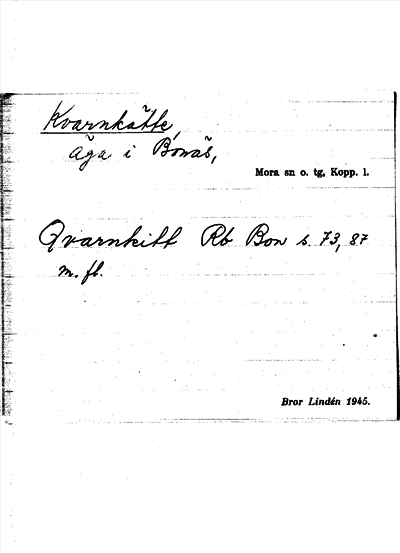 Kvarnkätte,
äga i Bonäs,
Mora sn o. tg, Kopp. l.
Qvarnkitt Rb Bon s. 73, 87
m. fl.
Bror Lindén 1945.